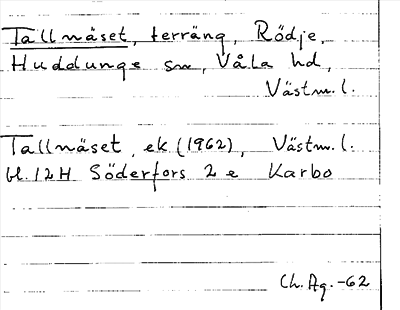 Tallnäset, terräng, Rödje,
Huddunge sn, Våla hd,
Västm. l.
Tallnäset, ek (1962), Västm. l.
bl. 12H Söderfors 2 e Karbo
Ch. Ag. -62